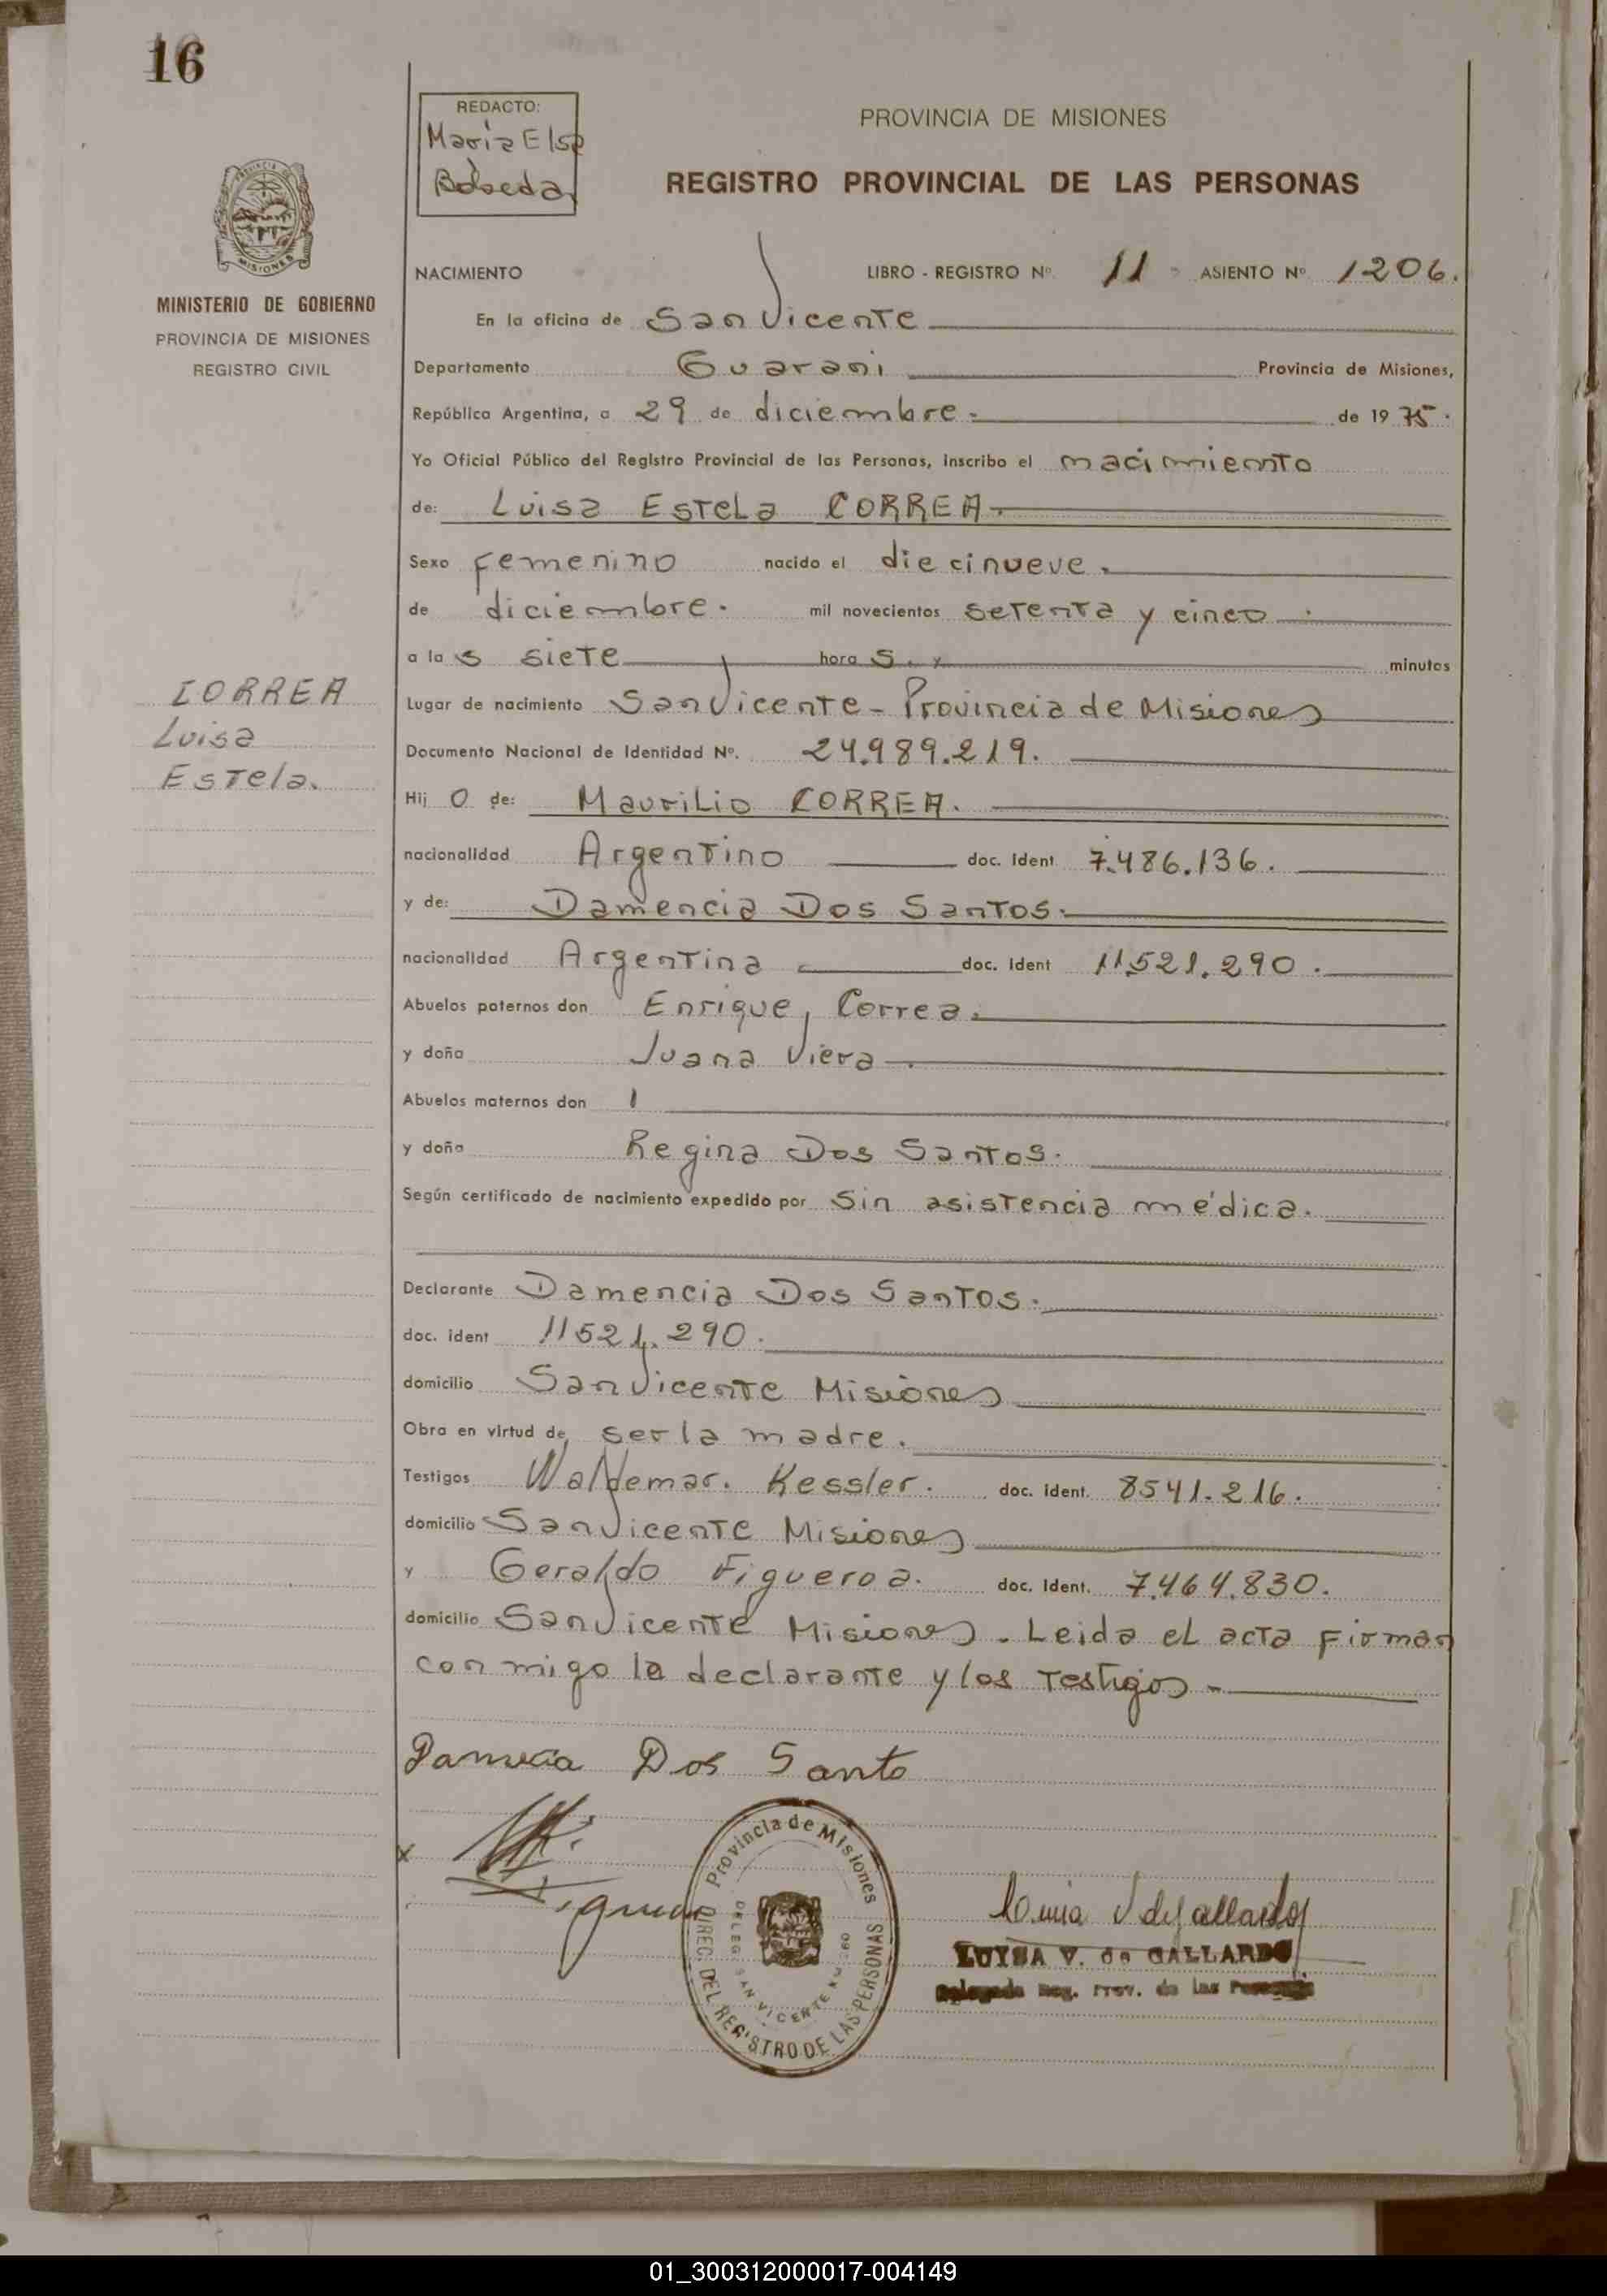 16
REDACTO:
María Elsa
PROVINCIA DE MISIONES
REGISTRO PROVINCIAL DE LAS PERSONAS
MISIONES
MINISTERIO DE GOBIERNO
PROVINCIA DE MISIONES
REGISTRO CIVIL
NACIMIENTO LIBRO - REGISTRO Nº 11 ASIENTO Nº 1206.
En la oficina de San Vicente
Departamento Guarani Provincia de Misiones,
República Argentina, a 29 de diciembre. de 1975.
Yo Oficial Público del Registro Provincial de las Personas, inscribo el nacimiento
de: Luisa Estela CORREA.
Sexo femenino nacido el diecinueve.
de diciembre. mil novecientos setenta y cinco
a las siete horas. y minutos
CORREA
Luisa
Estela.
Lugar de nacimiento San Vicente - Provincia de Misiones
Documento Nacional de Identidad Nº. 24.989.219.
Hij o de: Maurilio CORREA.
nacionalidad Argentino doc. Ident 7.486.136.
y de: Damencia Dos Santos.
nacionalidad Argentina doc. Ident 11521.290.
Abuelos paternos don Enrique, Correa.
y doña Juana Viera.
Abuelos maternos don
y doña Regina Dos Santos.
Según certificado de nacimiento expedido por Sin asistencia médica.
Declarante Damencia Dos Santos.
doc. ident 11521.290.
domicilio San Vicente Misiones
Obra en virtud de ser la madre.
Testigos Waldemar. Kessler. doc. ident. 8541.216.
domicilio San Vicente Misiones
y Geraldo Figueroa. doc. Ident. 7.464.830.
domicilio San Vicente Misiones. Leida el acta firman
conmigo la declarante y los testigos.
Dos Santo
Provincia de Misiones
DIREC. DEL REGISTRO DE LAS PERSONAS
DELEG. SAN VICENTE
LUISA V. de GALLARDO
Delegada Reg. Prov. de las Personas
01_300312000017-004149